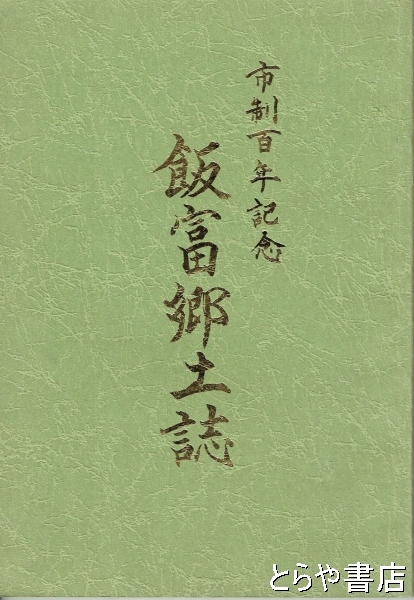 市制百年記念
飯富郷土誌
とらや書店